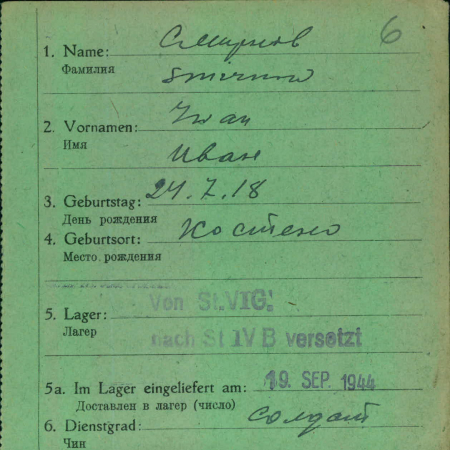 6
Смирнов
1. Name:
Фамилия
Smirnow
Iwan
2. Vornamen:
Имя
Иван
3. Geburtstag: 24.7.18
День рождения
4. Geburtsort:
Место рождения
Von St.VIG.
5. Lager:
Лагер
nach St IV B versetzt
5a. Im Lager eingeliefert am: 19. SEP. 1944
Доставлен в лагер (число)
6. Dienstgrad: солдат
Чин